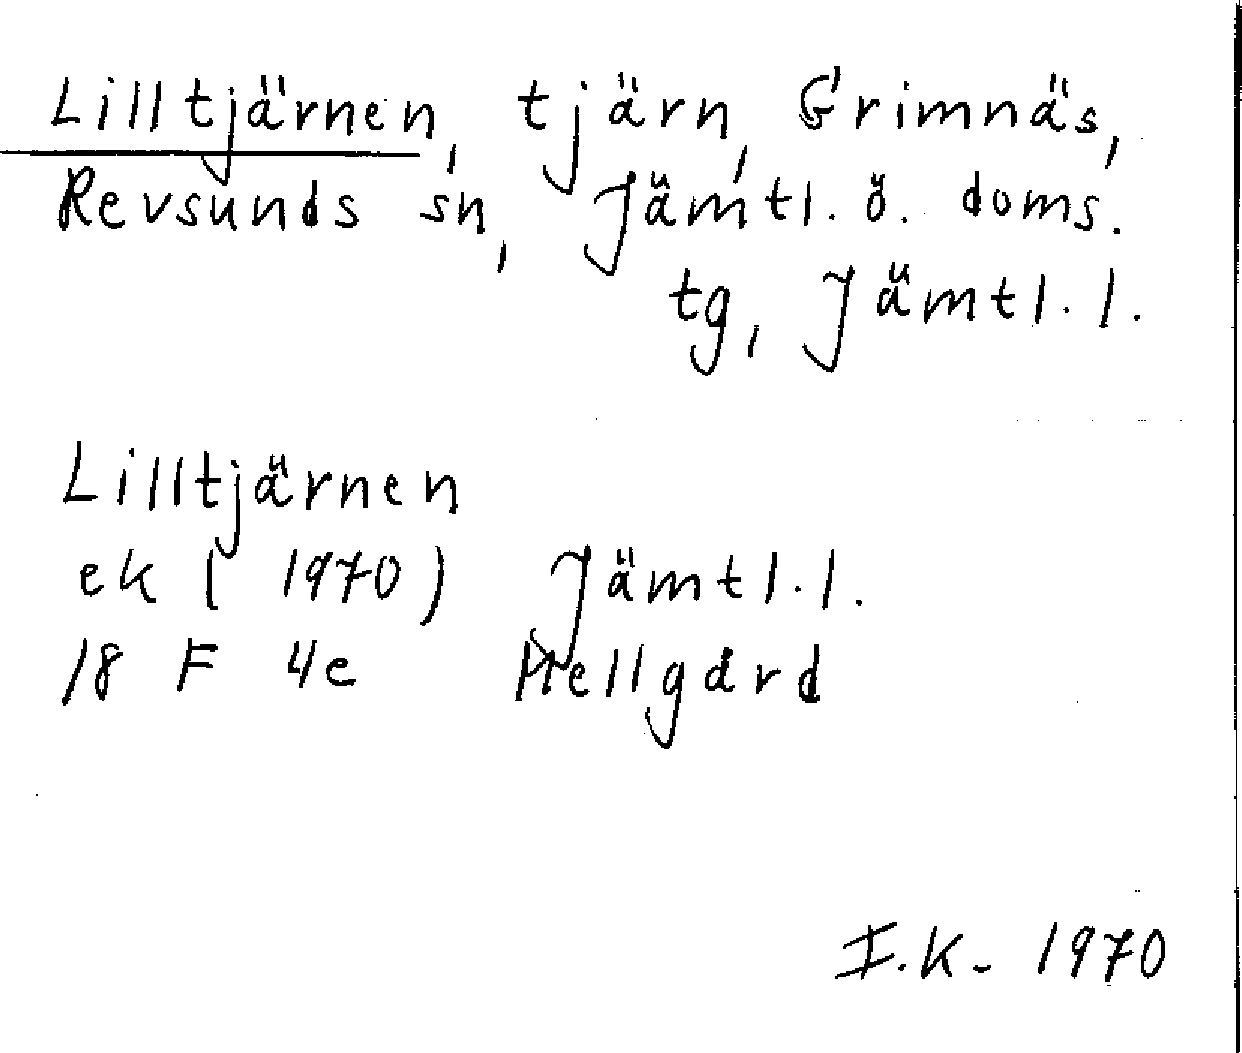 Lilltjärnen, tjärn, Grimnäs,
Revsunds sn, Jämtl. ö. doms.
tg, Jämtl. l.
Lilltjärnen
ek (1970) Jämtl. l.
18 F 4e Mellgård
I.K. 1970